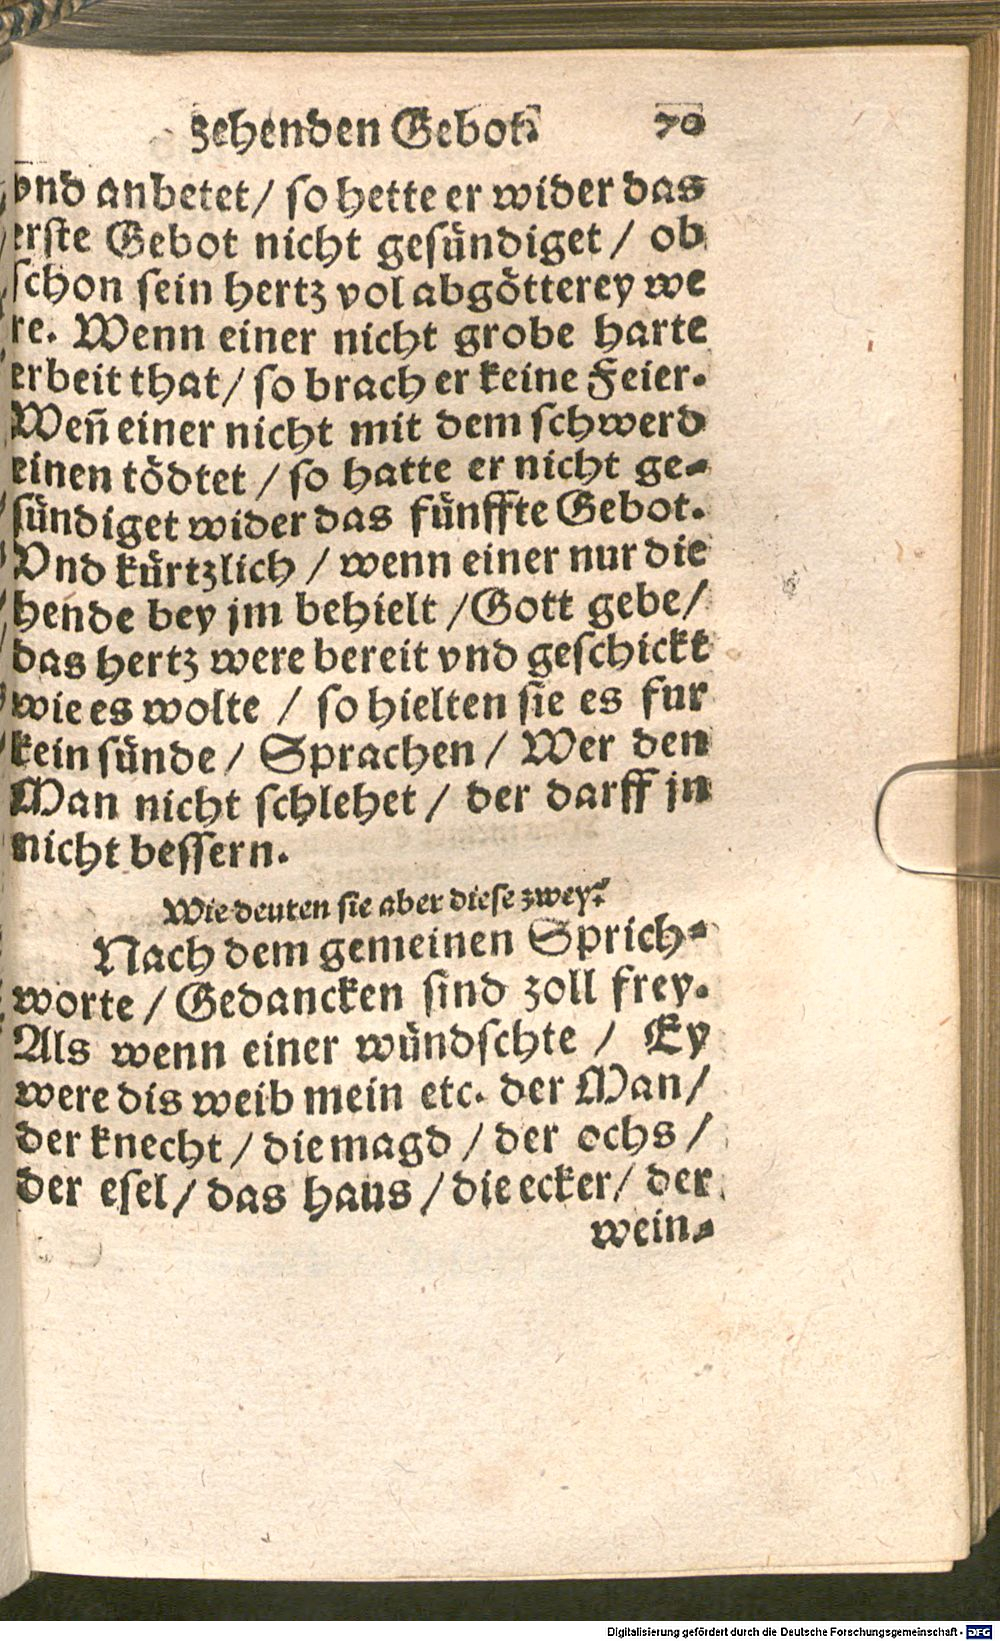 zehenden Gebot. 70
vnd anbetet / so hette er wider das
erste Gebot nicht gesündiget / ob
schon sein hertz vol abgötterey we
re. Wenn einer nicht grobe harte
erbeit that / so brach er keine Feier.
Weñ einer nicht mit dem schwerd
einen tödtet / so hatte er nicht ge-
sündiget wider das fünffte Gebot.
Vnd kürtzlich / wenn einer nur die
hende bey jm behielt / Gott gebe /
das hertz were bereit vnd geschickt
wie es wolte / so hielten sie es fur
kein sünde / Sprachen / Wer den
Man nicht schlehet / der darff jn
nicht bessern.
Wie deuten sie aber diese zwey?
Nach dem gemeinen Sprich-
worte / Gedancken sind zoll frey.
Als wenn einer wündschte / Ey
were dis weib mein etc. der Man /
der knecht / die magd / der ochs /
der esel / das haus / die ecker / der
wein-
Digitalisierung gefördert durch die Deutsche Forschungsgemeinschaft - DFG